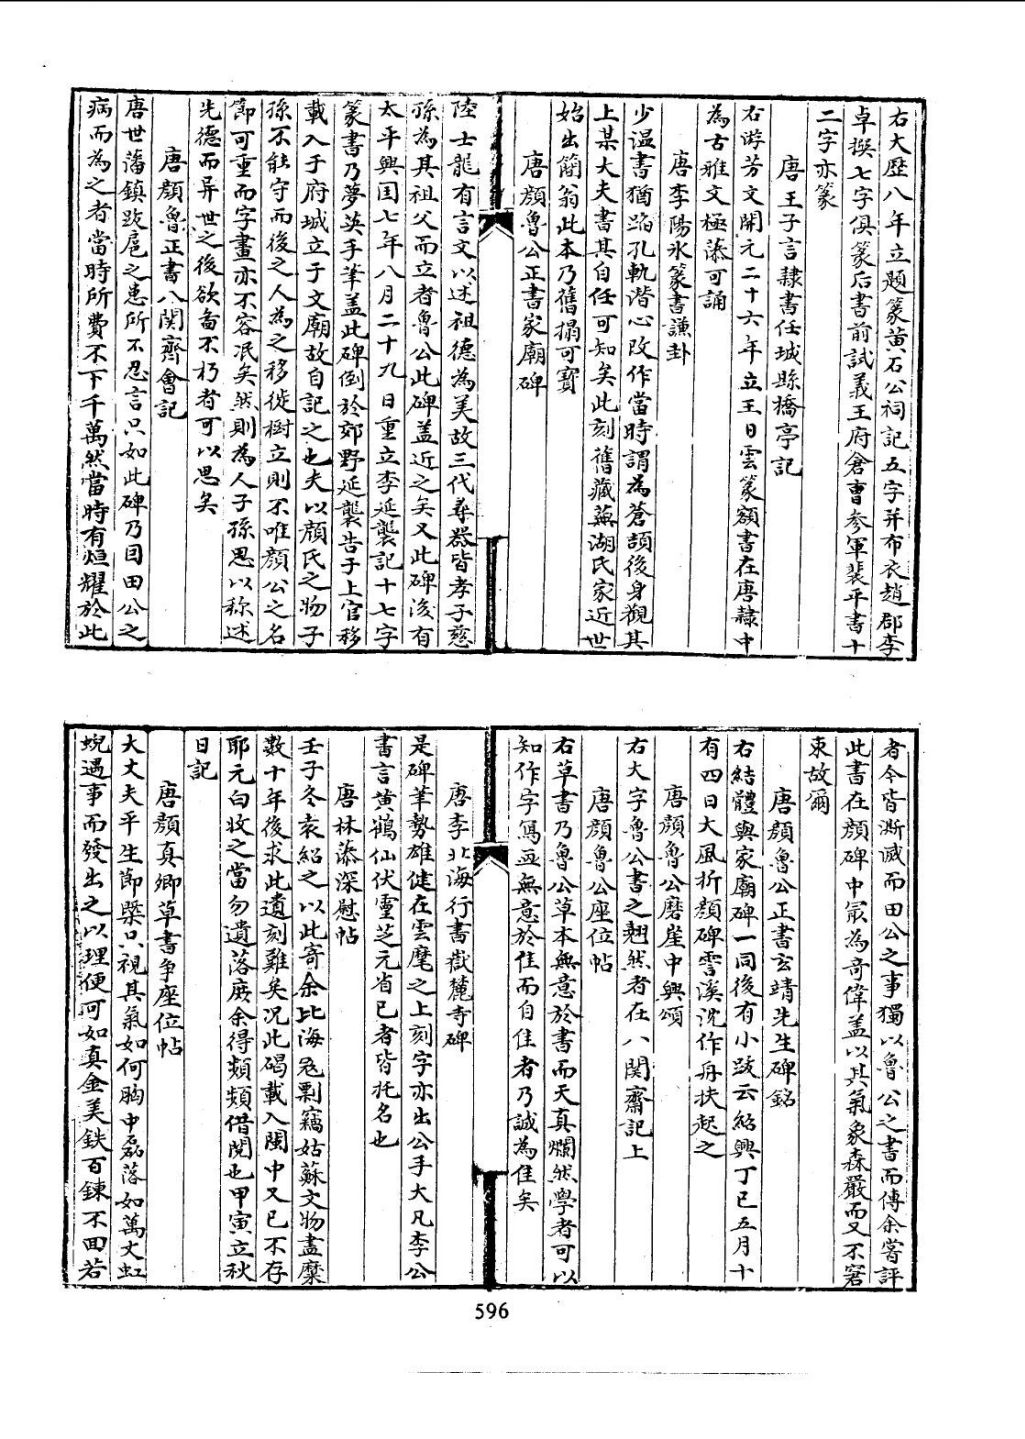 右大歷八年立題篆黄石公祠記五字并布衣趙郡李
卓撰七字俱篆后書前試義王府倉曹參軍裴平書十
二字亦篆
唐王子言隸書任城縣橋亭記
右游芳文開元二十六年立王日雲篆額書在唐隸中
為古雅文極添可誦
唐李陽氷篆書謙卦
少温書猶蹈孔軌潛心改作當時謂為蒼頡後身觀其
上某大夫書其自任可知矣此刻舊藏蕪湖氏家近世
始出簡翁此本乃舊搨可寳
唐顔魯公正書家廟碑
陸士龍有言文以述祖德為美故三代尊器皆孝子慈
孫為其祖父而立者魯公此碑盖近之矣又此碑後有
太平興国七年八月二十九日重立李延襲記十七字
篆書乃夢英手筆盖此碑倒於郊野延襲告于上官移
載入于府城立于文廟故自記之也夫以顔氏之物子
孫不能守而後之人為之移徙樹立則不唯顔公之名
節可重而字畫亦不容泯矣然則為人子孫思以称述
先德而异世之後欲畣不朽者可以思矣
唐顔魯正書八関齊會記
唐世藩鎮跋扈之患所不忍言只如此碑乃因田公之
病而為之者當時所費不下千萬然當時有烜耀於此
者今皆澌滅而田公之事獨以魯公之書而傳余嘗評
此書在顔碑中㝡為竒偉盖以其氣象森嚴而又不窘
束故爾
唐顔魯公正書玄靖先生碑銘
右結體與家廟碑一同後有小跋云紹興丁巳五月十
有四日大風折顔碑霅溪沈作舟扶起之
唐顔魯公磨崖中興頌
右大字魯公書之翹然者在八関齋記上
唐顔魯公座位帖
右草書乃魯公草本無意於書而天真爛然學者可以
知作字寫亟無意於佳而自佳者乃誠為佳矣
唐李北海行書嶽麓寺碑
是碑筆勢雄健在雲麾之上刻字亦出公手大凡李公
書言黄鶴仙伏靈芝元省已者皆托名也
唐林添深慰帖
壬子冬袁紹之以此寄余比海宼剽竊姑蘇文物盡糜
數十年後求此遺刻難矣况此碣載入閩中又已不存
耶元白收之當勿遺落庻余得頻頻借閲也甲寅立秋
日記
唐顔真卿草書争座位帖
大丈夫平生節槩只視其氣如何胸中磊落如萬丈虹
蜺遇事而發出之以理便可如真金美鉄百鍊不回若
596